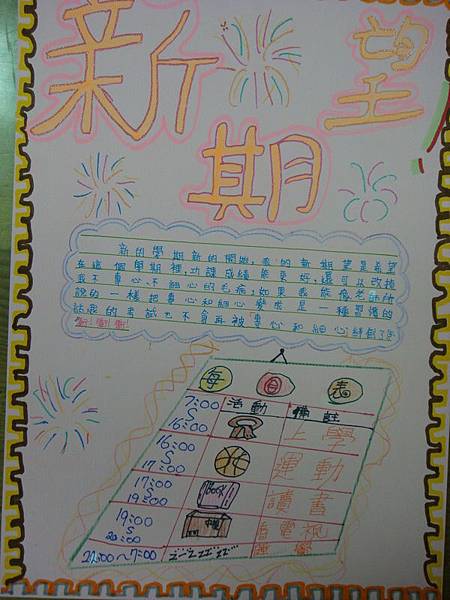 新 望
期
新的學期新的開始，我的新期望是希望
在這個學期裡，功課成績能更好，還可以改掉
我不專心、不細心的毛病，如果我能像老師所
說的一樣把專心和細心變成是一種習慣的
話我的考試也不會再被「專心和細心絆倒了
衝!衝!衝!
每 日 表
7:00 S 16:00 活動 備註
上學
16:00 S 17:00 運動
17:00 S 19:00 BOOK 讀書
19:00 S 22:00 看電視
22:00~7:00 ZZZZZZ 睡覺